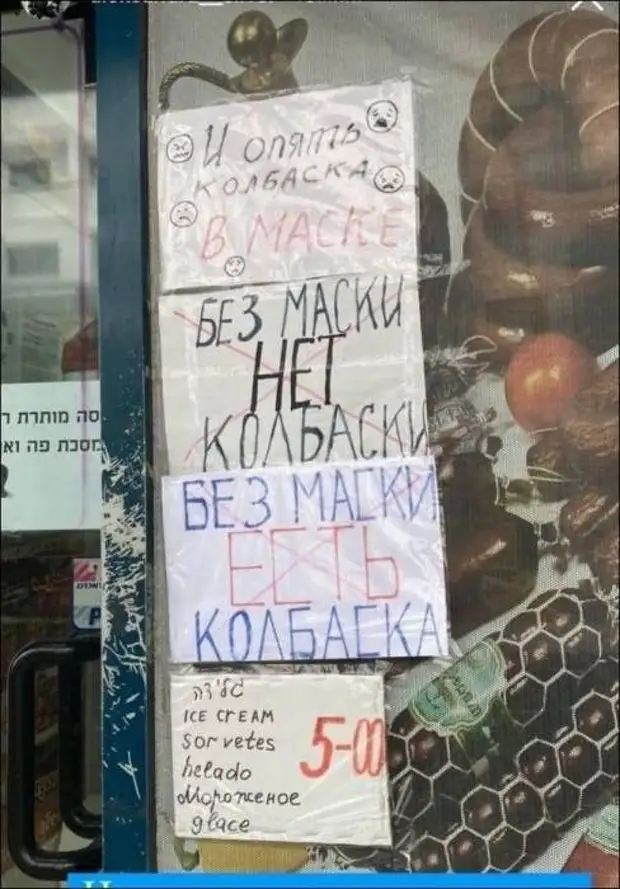 И ОПЯТЬ
КОЛБАСКА
В МАСКЕ
БЕЗ МАСКИ
НЕТ
КОЛБАСКИ
БЕЗ МАСКИ
ЕСТЬ
КОЛБАСКА
גלידה
ICE CREAM
Sorvetes
helado
Мороженое
glace
5-00
סה מותרת
מסכת פה